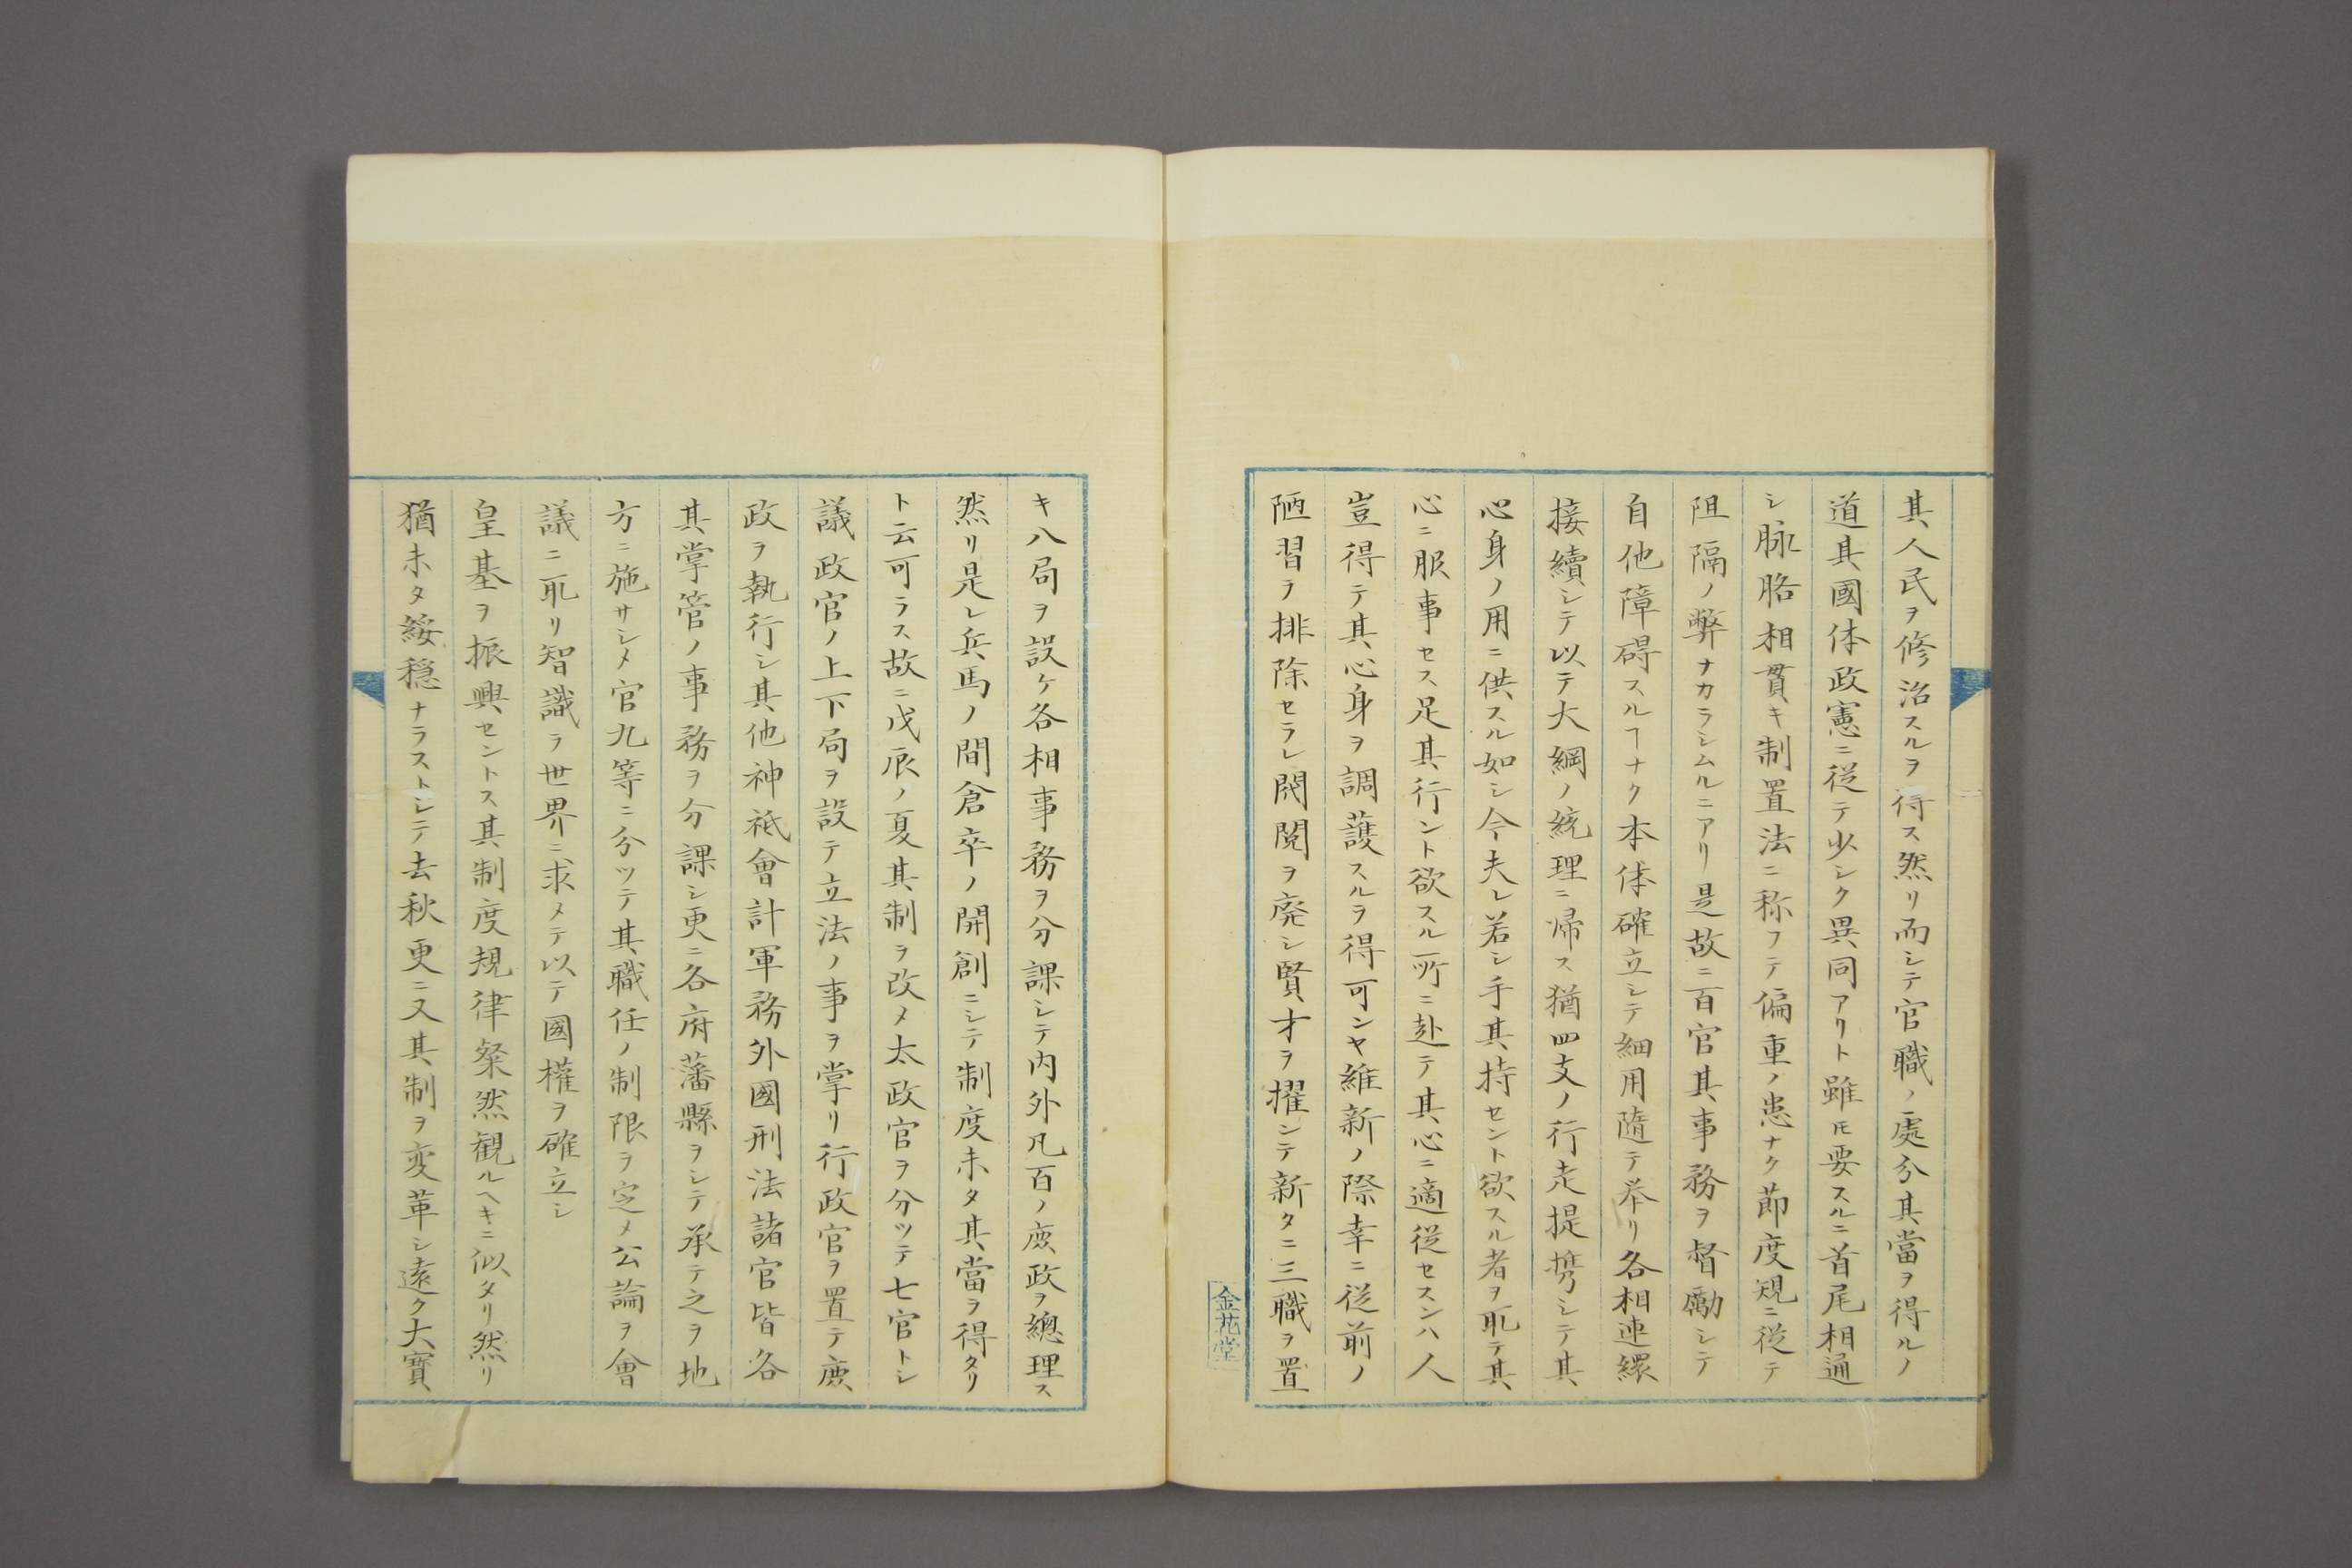 其人民ヲ修治スルヲ得ス然リ而シテ官職ノ處分其當ヲ得ルノ
道其國体政憲ニ従テ少シク異同アリト雖𪜈要スルニ首尾相通
シ脉胳相貫キ制置法ニ称フテ偏重ノ患ナク節度規ニ従テ
阻隔ノ弊ナカラシムルニアリ是故ニ百官其事務ヲ督勵シテ
自他障碍スルヿナク本体確立シテ細用隨テ挙リ各相連繯
接續シテ以テ大綱ノ統理ニ帰ス猶四支ノ行走提携シテ其
心身ノ用ニ供スル如シ今夫レ若シ手其持セント欲スル者ヲ取テ其
心ニ服事セス足其行ント欲スル所ニ赴テ其心ニ適従セスンハ人
豈得テ其心身ヲ調護スルヲ得可ンヤ維新ノ際幸ニ従前ノ
陋習ヲ排除セラレ閥閲ヲ廃シ賢才ヲ擢ンテ新タニ三職ヲ置
金花堂
キ八局ヲ設ケ各相事務ヲ分課シテ内外凡百ノ庶政ヲ總理ス
然リ是レ兵馬ノ間倉卒ノ開創ニシテ制度未タ其當ヲ得タリ
ト云可ラス故ニ戊辰ノ夏其制ヲ改メ太政官ヲ分ツテ七官トシ
議政官ノ上下局ヲ設テ立法ノ事ヲ掌リ行政官ヲ置テ庶
政ヲ執行シ其他神祇會計軍務外國刑法諸官皆各
其掌管ノ事務ヲ分課シ更ニ各府藩縣ヲシテ承テ之ヲ地
方ニ施サシメ官九等ニ分ツテ其職任ノ制限ヲ定メ公論ヲ會
議ニ取リ智識ヲ世界ニ求メテ以テ國權ヲ確立シ
皇基ヲ振興セントス其制度規律粲然観ルヘキニ似タリ然リ
猶未タ綏穏ナラストシテ去秋更ニ又其制ヲ変革シ遠ク大寳